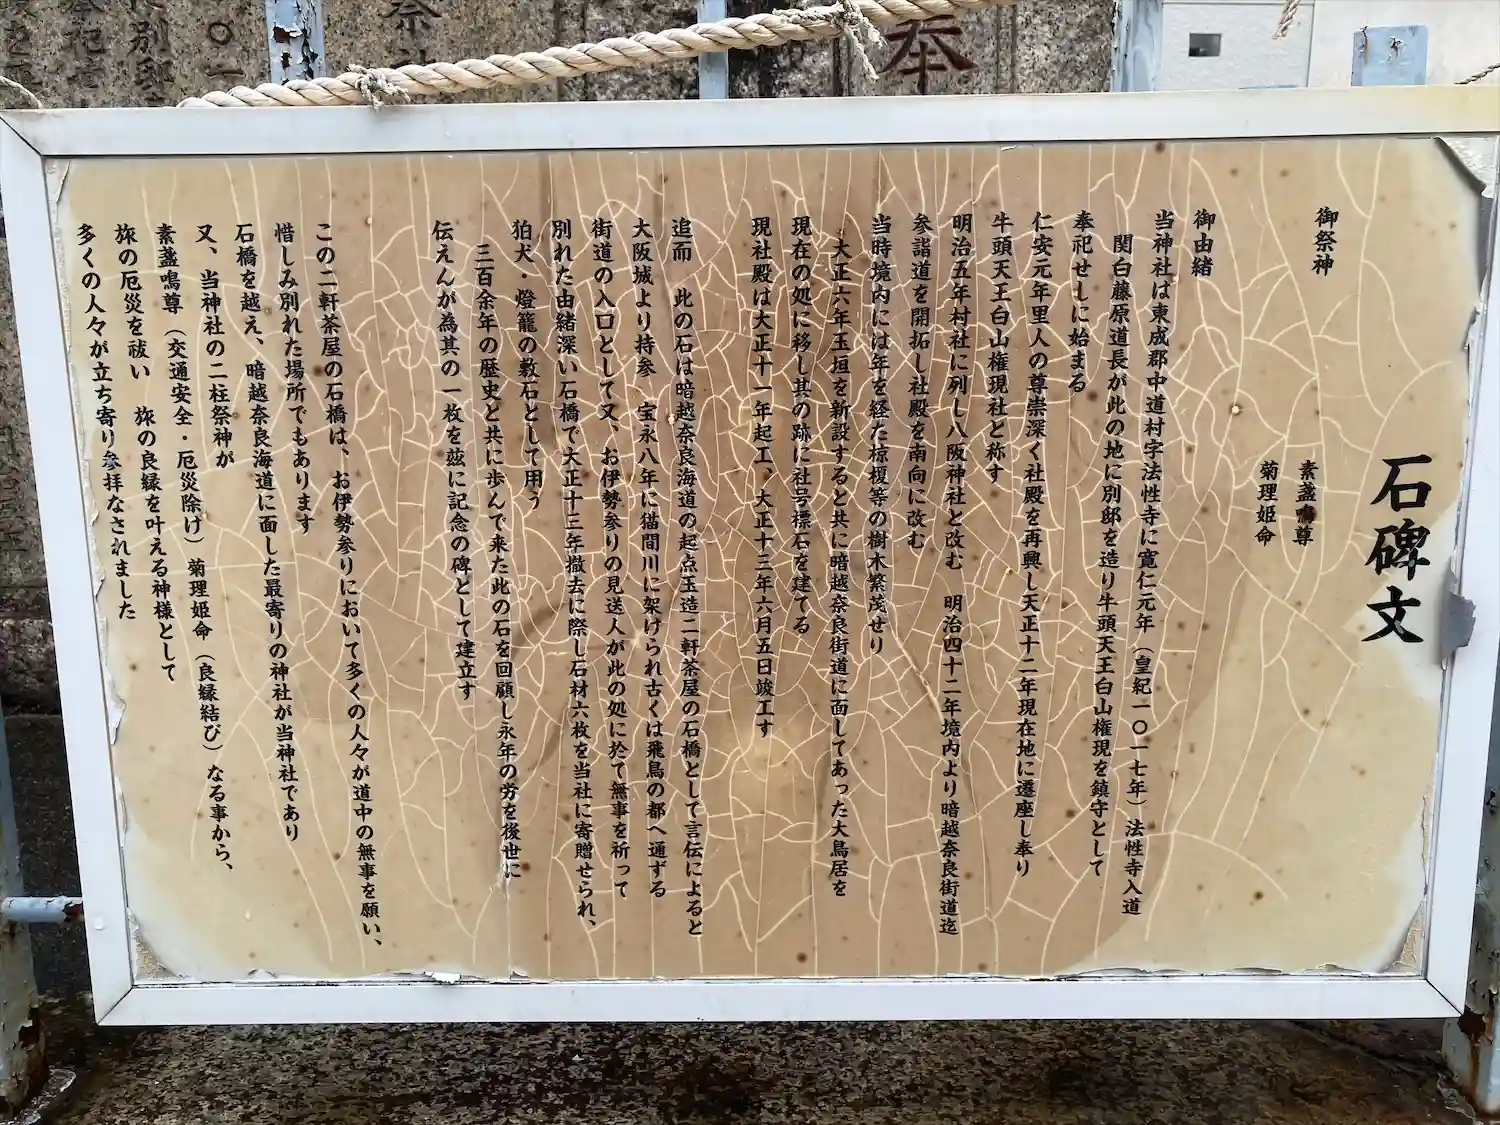 石碑文
御祭神
素盞鳴尊
菊理姫命
御由緒
当神社は東成郡中道村字法性寺に寛仁元年（皇紀一〇一七年）法性寺入道
関白藤原道長が此の地に別邸を造り牛頭天王白山権現を鎮守として
奉祀せしに始まる
仁安元年里人の尊崇深く社殿を再興し天正十二年現在地に遷座し奉り
牛頭天王白山権現社と称す
明治五年村社に列し八阪神社と改む　明治四十二年境内より暗越奈良街道迄
参詣道を開拓し社殿を南向に改む
当時境内には年を経た椋榎等の樹木繁茂せり
大正六年玉垣を新設すると共に暗越奈良街道に面してあった大鳥居を
現在の処に移し其の跡に社号標石を建てる
現社殿は大正十一年起工、大正十三年六月五日竣工す
追而　此の石は暗越奈良海道の起点玉造二軒茶屋の石橋として言伝によると
大阪城より持参　宝永八年に猫間川に架けられ古くは飛鳥の都へ通ずる
街道の入口として又、お伊勢参りの見送人が此の処に於て無事を祈って
別れた由緒深い石橋で大正十三年撤去に際し石材六枚を当社に寄贈せられ、
狛犬・燈籠の敷石として用う
三百余年の歴史と共に歩んで来た此の石を回顧し永年の労を後世に
伝えんが為其の一枚を茲に記念の碑として建立す
この二軒茶屋の石橋は、お伊勢参りにおいて多くの人々が道中の無事を願い、
惜しみ別れた場所でもあります
石橋を越え、暗越奈良海道に面した最寄りの神社が当神社であり
又、当神社の二柱祭神が
素盞鳴尊（交通安全・厄災除け）菊理姫命（良縁結び）なる事から、
旅の厄災を祓い　旅の良縁を叶える神様として
多くの人々が立ち寄り参拝なされました
奉